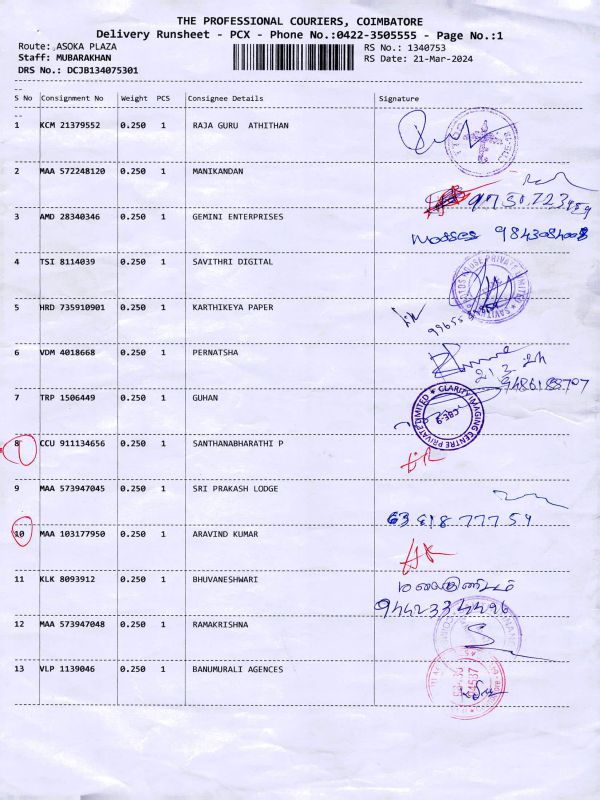 THE PROFESSIONAL COURIERS, COIMBATORE
Delivery Runsheet - PCX - Phone No.:0422-3505555 - Page No.:1
Route: ASOKA PLAZA RS No.: 1340753
Staff: MUBARAKHAN RS Date: 21-Mar-2024
DRS No.: DCJB134075301
S No Consignment No Weight PCS Consignee Details Signature
1 KCM 21379552 0.250 1 RAJA GURU ATHITHAN
2 MAA 572248120 0.250 1 MANIKANDAN
3 AMD 28340346 0.250 1 GEMINI ENTERPRISES
9843084008
4 TSI 8114039 0.250 1 SAVITHRI DIGITAL
5 HRD 735910901 0.250 1 KARTHIKEYA PAPER
6 VDM 4018668 0.250 1 PERNATSHA
9486188707
7 TRP 1506449 0.250 1 GUHAN
CLARITY IMAGING CENTRE PRIVATE LIMITED
CBE-9
8 CCU 911134656 0.250 1 SANTHANABHARATHI P
9 MAA 573947045 0.250 1 SRI PRAKASH LODGE
63 818 777 59
10 MAA 103177950 0.250 1 ARAVIND KUMAR
11 KLK 8093912 0.250 1 BHUVANESHWARI
9442334496
12 MAA 573947048 0.250 1 RAMAKRISHNA
13 VLP 1139046 0.250 1 BANUMURALI AGENCES